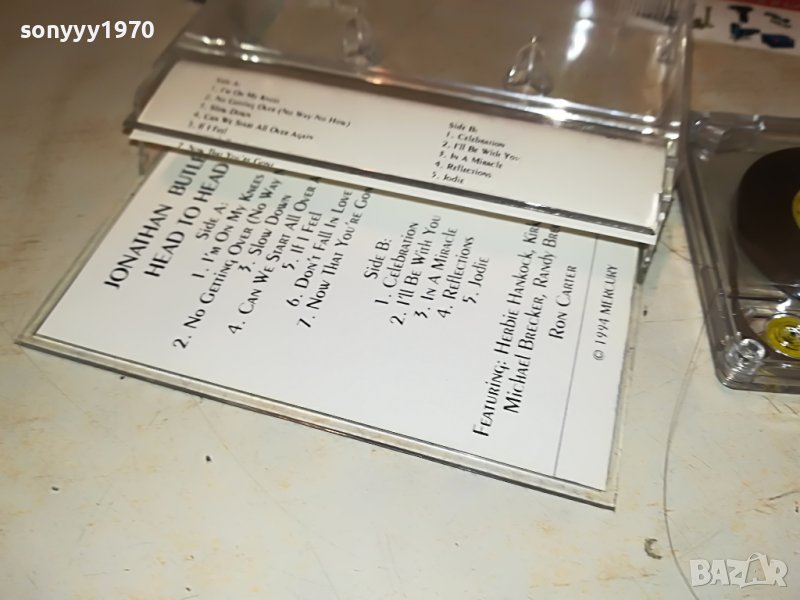 sonyyy1970
Side A:
1. I'm On My Knees
2. No Getting Over (No Way No How)
3. Slow Down
4. Can We Start All Over Again
5. If I Feel
7. Now That You're Gone
Side B:
1. Celebration
2. I'll Be With You
3. In A Miracle
4. Reflections
5. Jodie
JONATHAN BUTLER
HEAD TO HEAD
Side A:
1. I'm On My Knees
2. No Getting Over (No Way
3. Slow Down
4. Can We Start All Over A
5. If I Feel
6. Don't Fall In Love
7. Now That You're Gon
Side B:
1. Celebration
2. I'll Be With You
3. In A Miracle
4. Reflections
5. Jodie
Featuring: Herbie Hankock, Kir
Michael Brecker, Randy Bre
Ron Carter
© 1994 MERCURY
BAZAR